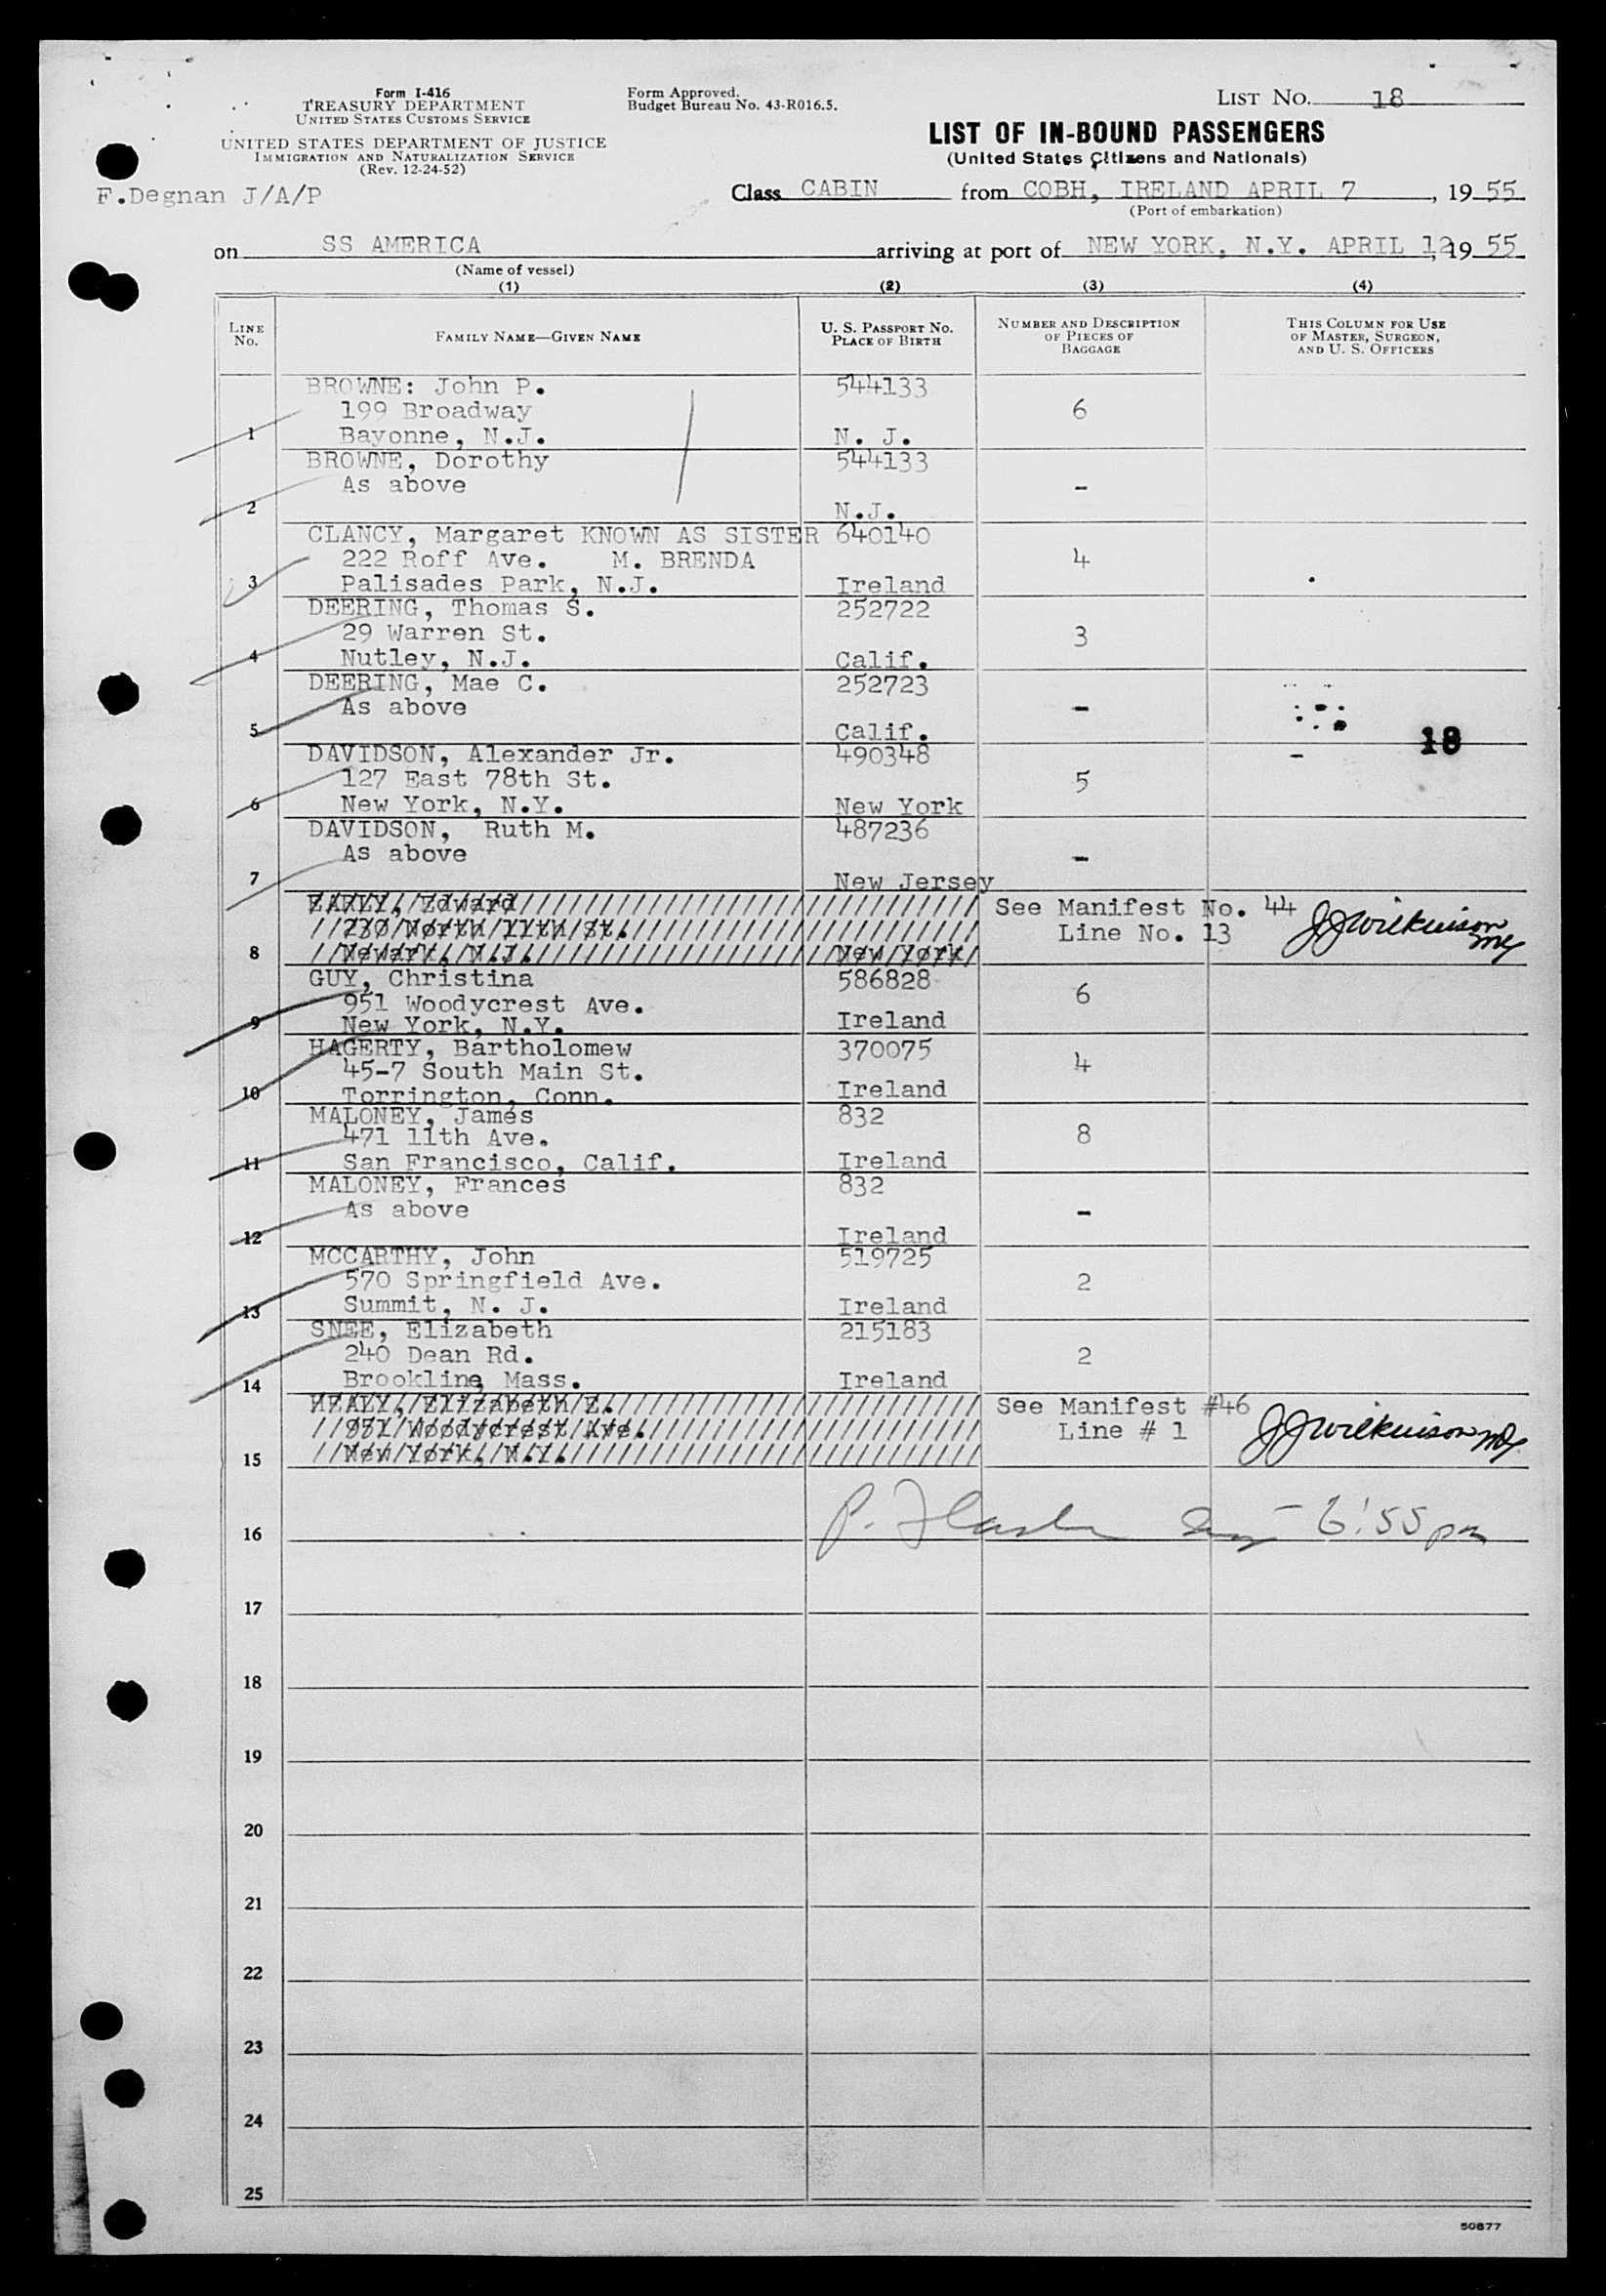 Form I-416
TREASURY DEPARTMENT
UNITED STATES CUSTOMS SERVICE
UNITED STATES DEPARTMENT OF JUSTICE
IMMIGRATION AND NATURALIZATION SERVICE
(Rev. 12-24-52)
Form Approved.
Budget Bureau No. 43-R016.5.
LIST NO. 18
LIST OF IN-BOUND PASSENGERS
(United States Citizens and Nationals)
F.Degnan J/A/P
Class CABIN from COBH, IRELAND APRIL 7, 1955
(Port of embarkation)
on SS AMERICA arriving at port of NEW YORK, N.Y. APRIL 12, 1955
(Name of vessel)
(1) (2) (3) (4)
LINE NO.
FAMILY NAME—GIVEN NAME
U. S. PASSPORT NO.
PLACE OF BIRTH
NUMBER AND DESCRIPTION
OF PIECES OF
BAGGAGE
THIS COLUMN FOR USE
OF MASTER, SURGEON,
AND U. S. OFFICERS
BROWNE: John P. 544133
199 Broadway 6
1 Bayonne, N.J. N. J.
BROWNE, Dorothy 544133
As above -
2 N.J.
CLANCY, Margaret KNOWN AS SISTER 640140
222 Roff Ave. M. BRENDA 4
3 Palisades Park, N.J. Ireland
DEERING, Thomas S. 252722
29 Warren St. 3
4 Nutley, N.J. Calif.
DEERING, Mae C. 252723
As above -
5 Calif.
18
DAVIDSON, Alexander Jr. 490348
127 East 78th St. 5
6 New York, N.Y. New York
DAVIDSON, Ruth M. 487236
As above -
7 New Jersey
EARLY, Edward See Manifest No. 44
230 North 11th St. Line No. 13 JJWilkinson
8 Newark, N.J. New York
GUY, Christina 586828
951 Woodycrest Ave. 6
9 New York, N.Y. Ireland
HAGERTY, Bartholomew 370075
45-7 South Main St. 4
10 Torrington, Conn. Ireland
MALONEY, James 832
471 11th Ave. 8
11 San Francisco, Calif. Ireland
MALONEY, Frances 832
As above -
12 Ireland
MCCARTHY, John 519725
570 Springfield Ave. 2
13 Summit, N. J. Ireland
SNEE, Elizabeth 215183
240 Dean Rd. 2
14 Brookline, Mass. Ireland
HEALY, Elizabeth E. See Manifest #46
951 Woodycrest Ave. Line # 1 JJWilkinson
15 New York, N.Y.
16 6:55 pm
17
18
19
20
21
22
23
24
25
50877